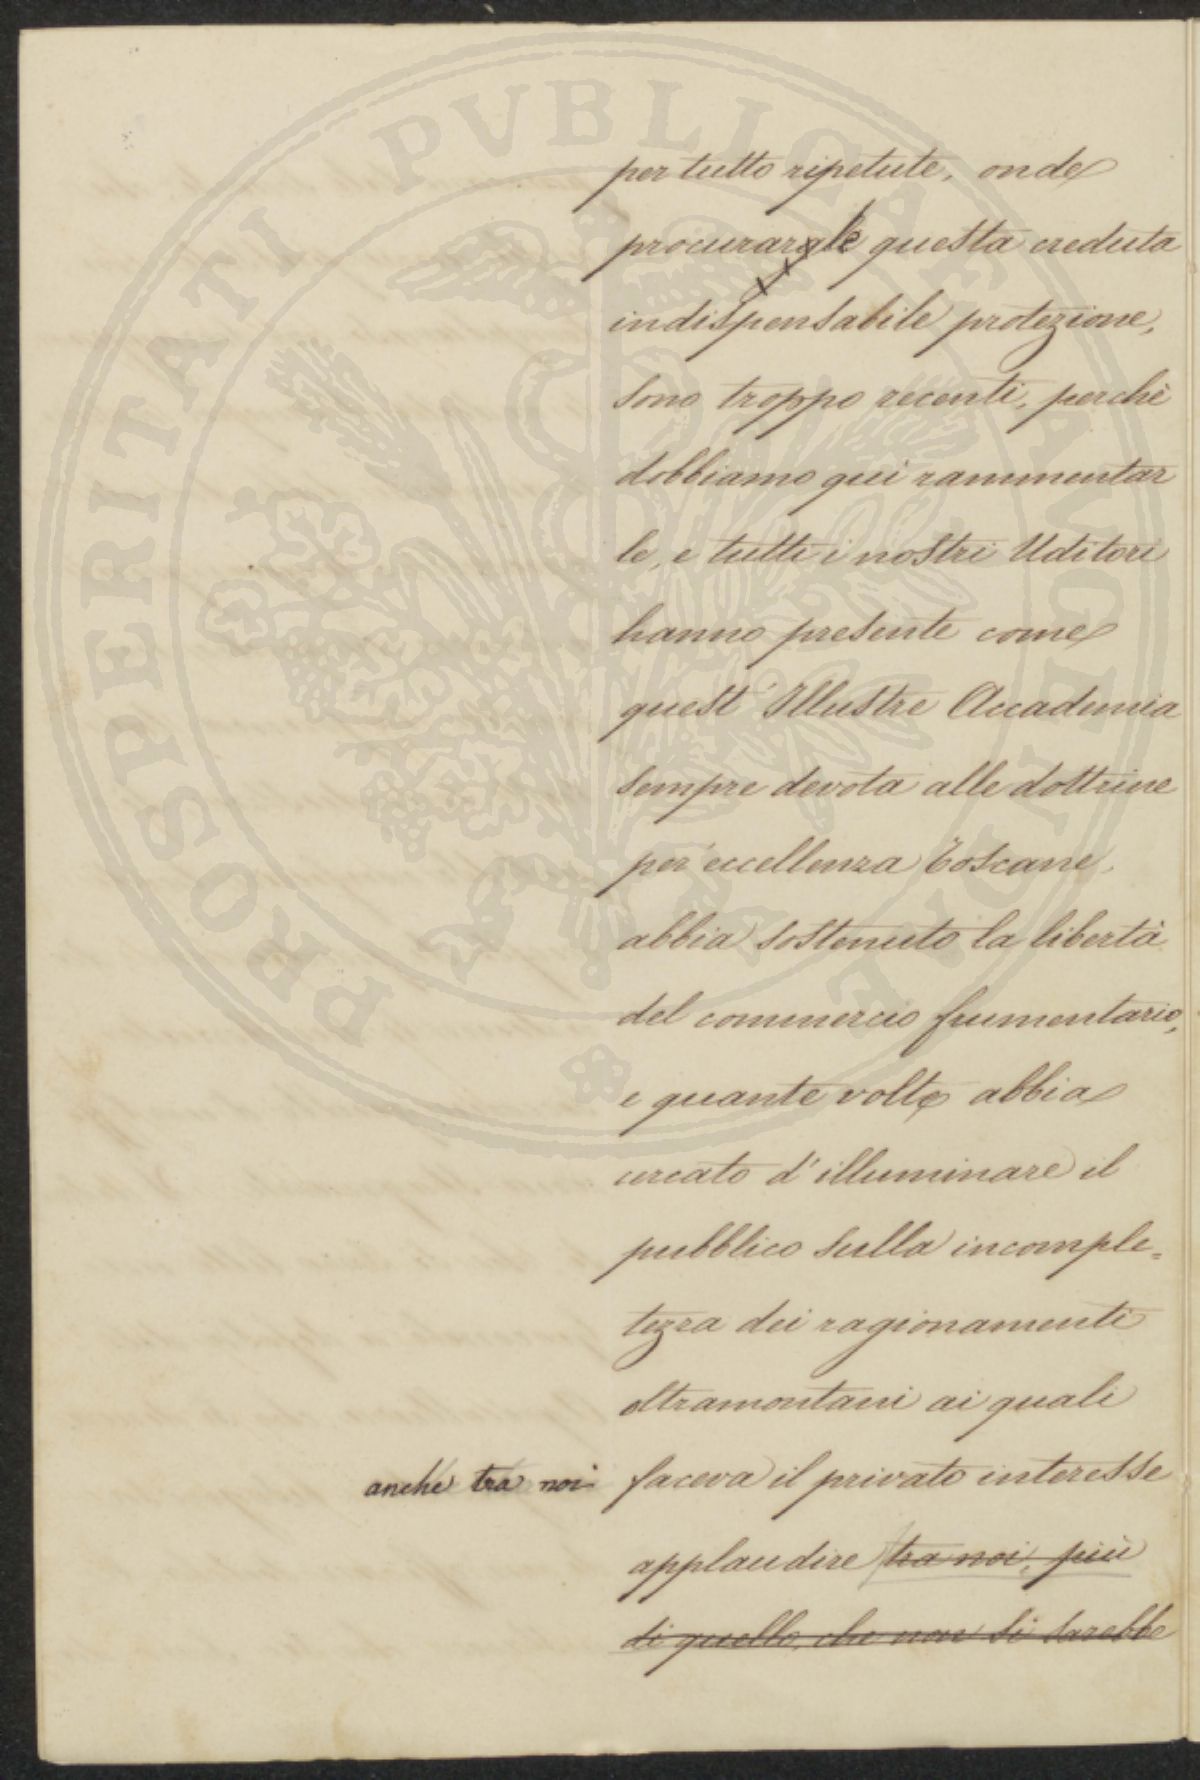 PROSPERITATI PUBLICAE AUGENDAE
per tutto ripetute, onde
procurarle questa creduta
indispensabile protezione,
sono troppo recenti, perchè
dobbiamo quì rammentar
le, e tutti i nostri Uditori
hanno presente come
quest'Illustre Accademia
sempre devota alle dottrine
per eccellenza Toscane,
abbia sostenuto la libertà
del commercio frumentario,
e quante volte abbia
cercato d'illuminare il
pubblico sulla incomple=
tezza dei ragionamenti
oltramontani ai quali
anche tra noi faceva il privato interesse
applaudire tra noi, più
di quello, che non si sarebbe